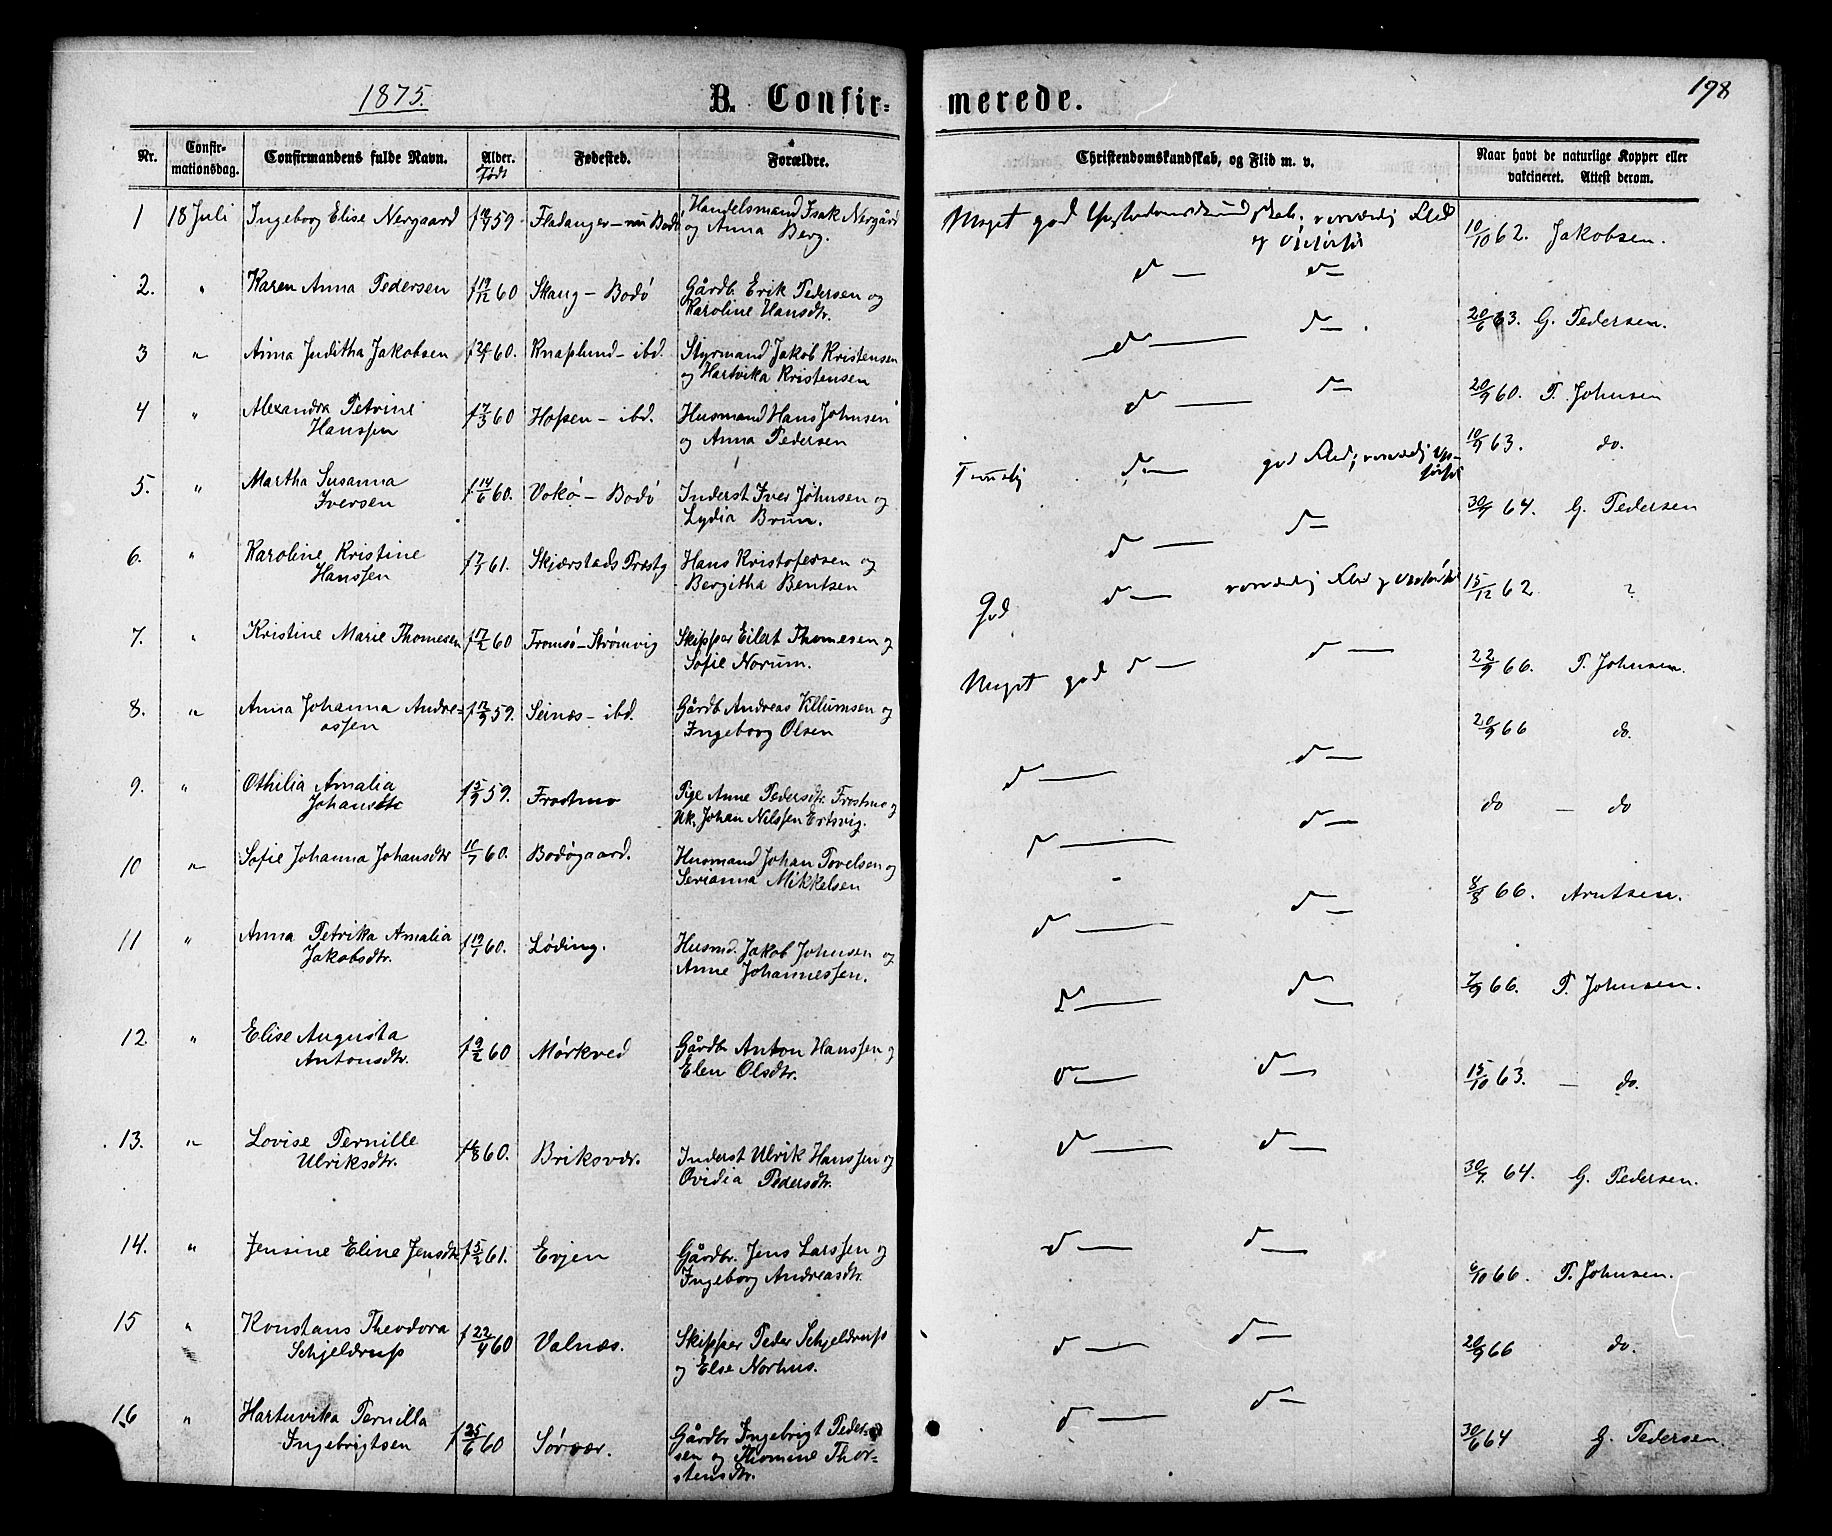 1875.
B. Confirmerede.
198
Nr. Confirmationsdag. Confirmandens fulde Navn. Alder. Fødested. Forældre. Christendomskundskab, og Flid m. v. Naar havt de naturlige Kopper eller vakcineret. Attest derom.
født
1 18 Juli Ingeborg Elise Nergaard Fladanger – nu Bodö Handelsmand Isak Nergård
og Anna Berg.
Meget god
10/10 62. Jakobsen.
2. " Karen Anna Pedersen f 19/12 60 Skaug – Bodö Gårdb. Erik Pedersen og
Karoline Hansdtr.
d — d —
20/6 63. G. Pedersen.
3 " Anna Juditha Jakobsen Knaplund – ibd. Styrmand Jakob Kristensen
og Hartvika Kristensen
d — d —
20/9 60. P. Johnsen
4 " Alexandra Petrine
Hanssen
f 7/3 60 Hopen – ibd. Husmand Hans Johnsen
og Anna Pedersen
d — d —
10/9 63. do.
5. " Martha Susanna
Iversen
f 14/6 60. Bodö Inderst Iver Johnsen og
Lydia Brun.
d — god Flid,
64. G. Pedersen
6. " Karoline Kristine
Hanssen
f 7/1 61. Skjærstads Præstg Hans Kristofersen og
Bergitha Bentsen
d — d —
15/12 62 ?
7. " Kristine Marie Thomesen f 17/2 60 Tromsö – Strömvig Skipper Eilert Thomesen og
Sofie Norum.
God d —
22/9 66. P. Johnsen.
8. " Anna Johanna Andreassen
f 12/9 59. Seines – ibd. Gårdb Andreas Villumsen og
Ingeborg Olsen
Meget god d — d —
20/9 66 do.
9. " Othilia Amalia
f 15/9 59. Frostmo Pige Anne Pedersdtr. Frostmo og
Uk. Johan Nilssen Ertsvig.
d — d —
do — do
10 " Sofie Johanna Johansdtr 10/7 60. Bodögaard. Husmand Johan Povelsen og
Serianna Mikkelsen
d — d —
8/8 66. Arntsen.
11 " Anna Petrika Amalia
Jakobsdtr.
f 19/1 60. Löding. Husmd. Jakob Johnsen og
Anne Johannessen.
d — d —
7/9 66. P. Johnsen.
12. " Elise Augusta
Antonsdtr.
f 9/2 60 Mörkved Gårdb. Anton Hanssen og
Elen Olsdtr.
d — d —
15/10 63. — do.
13. " Lovise Pernille
Ulriksdtr.
60. Briksvær. Inderst Ulrik Hanssen og
Ovidia Pedersdtr.
d — d —
64. G. Pedersen.
14. " Jensine Eline Jensdtr f 5/2 61. Evjen Gårdbr. Jens Larssen og
Ingeborg Andreasdtr.
d — d —
6/10 66. P. Johnsen.
15 " Konstans Theodora
Schjeldrup
f 22/4 60 Valnæs. Skipper Peder Schjeldrup
og Else Norhus.
d — d —
20/9 66 do.
16 " Hartuvika Pernilla
Ingebrigtsen
f 25/6 60 Sörvær. Gårdbr Ingebrigt Pedersen
og Thomine Thorstensdtr.
d — d —
30/6 64 G. Pedersen.